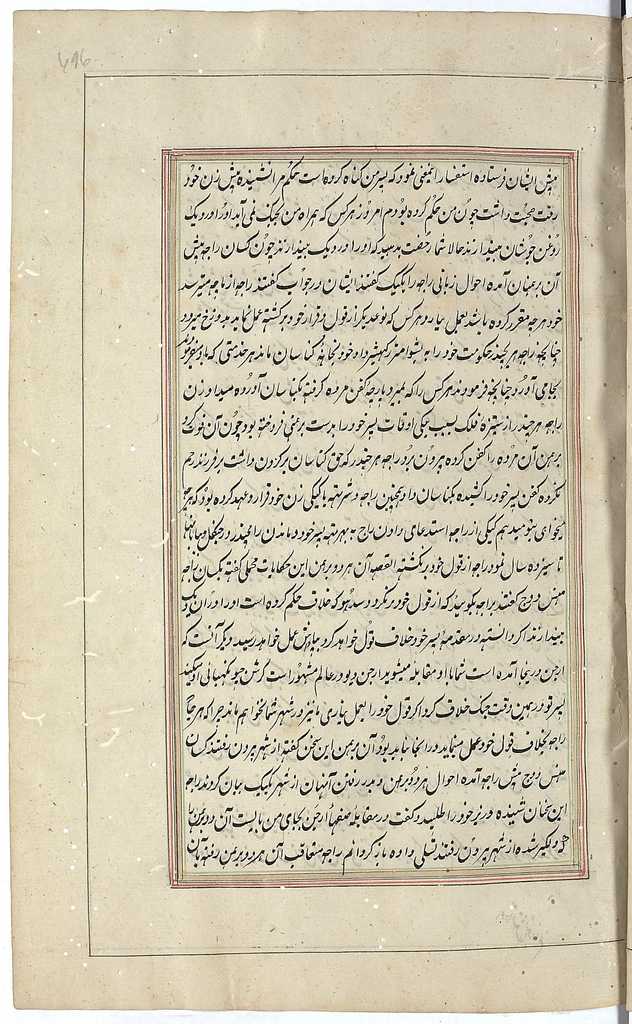 پیش ایشان فرستاده استفسار این معنی نمود که پسر من گناه کرده است حکم مرا نشنیده پیش زن خود
رفت صحبت داشت چون من حکم کرده بودم امروز هر کس که همراه من بجنگ نمی آید او را در دیگ
روغن جوشان بیندازند حالا شما رخصت بدهید که او را در دیک بیندازند چون کسان راجه پیش
آن برهمنان آمده احوال زبانی راجه را یکیک گفتند ایشان در جواب گفتند راجه از ما چه میپرسد
خود هر چه مقرر کرده باشد بعمل بیارد هر کس که بوعد یکبار از قول و قرار خود برگشته عمل نماید بدوزخ میرود
چنانچه راجه هریچند حکومت خود را به بشوامتر رکهیشر داد خود بخانه کناسان ماند هر خدمتی که باو میفرمود
بجا می آورد چنانچه فرمودند هر کس را که بمیرد پارچه کفن مرده گرفته بکناسان آورده میداد زن
راجه هریچند از ستیزه فلک بسبب اوقات پسر خود را بدست برهمنی فروخته بود چون آن فوت کرد
برهمن آن مرده را کفن کرده بیرون برد راجه هریچند که حق کناسان برگردن داشت بر فرزند رحم
نکرده کفن پسر خود را کشیده بکناسان داد همچنین راجه دسرتهه با کیکی زن خود قرار و عهد کرده بود که هر چه
بخواهی بتو میدهم کیکی از راجه استدعای دادن راج به بهرتهه پسر خود و ماندن رامچندر در جنگل و بیابانها
تا سیزده سال نمود راجه از قول خود برنگشته القصه آن هر دو برهمن این حکایات گفته بکسان راجه
هنس دوج گفتند براجه بگویید که از قول خود برنگردد سدهنو که خلاف حکم کرده است او را در آن دیک
بیندازند اگر دانسته در مقدمه پسر خود خلاف قول خواهد کرد بپاداش عمل خواهد رسید دیگر آنست که
ارجن در اینجا آمده است شما با او مقابله میشوید ارجن دیو در عالم مشهور است کرشن جیو نگهبانی او میکنند
پسر تو در همین وقت جنگ خلاف کرد اگر قول خود را بعمل نیاری ما نیز در شهر شما نخواهیم ماند چرا که هر جا
راجه بخلاف قول خود عمل مینماید در آنجا نباید بود آن برهمن این سخن گفته از شهر بیرون رفتند کسان
هنس دوج پیش راجه آمده احوال هر دو برهمن و بدر رفتن آنهان از شهر یکیک بیان کردند راجه
این سخنان شنیده وزیر خود را طلبید و گفت در مقابله صفها ارجن بجای من بایست آن دو برهمن را
که دلگیر شده از شهر بیرون رفتند تسلی داده باز گردانم راجه متعاقب آن هر دو برهمن رفته آنان